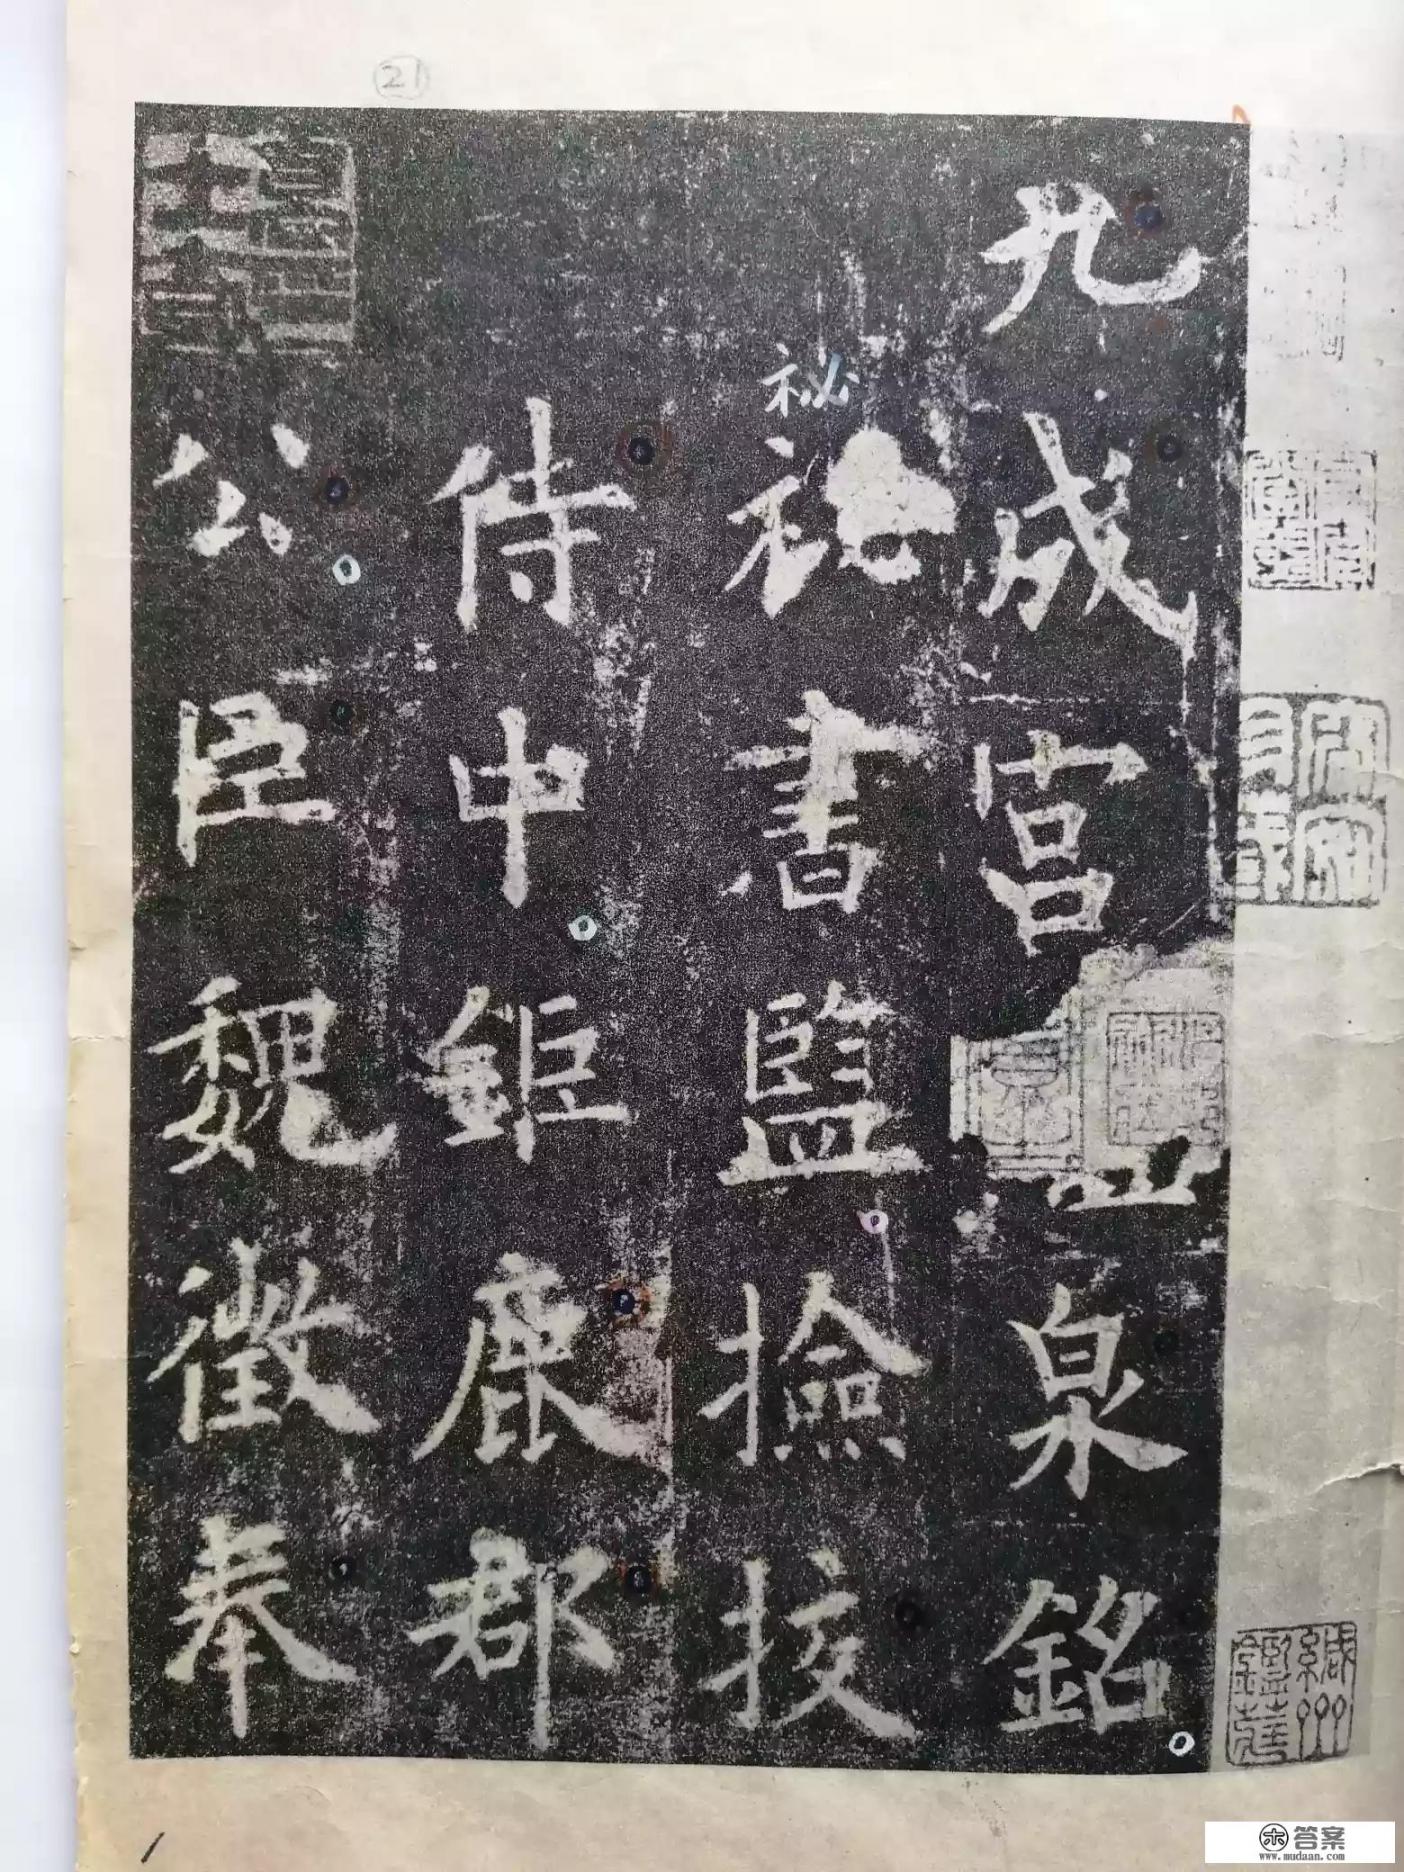 21
九成宮泉銘
祕
祕書監撿挍
侍中鉅鹿郡
公臣魏徵奉
答案
www.mudaan.com